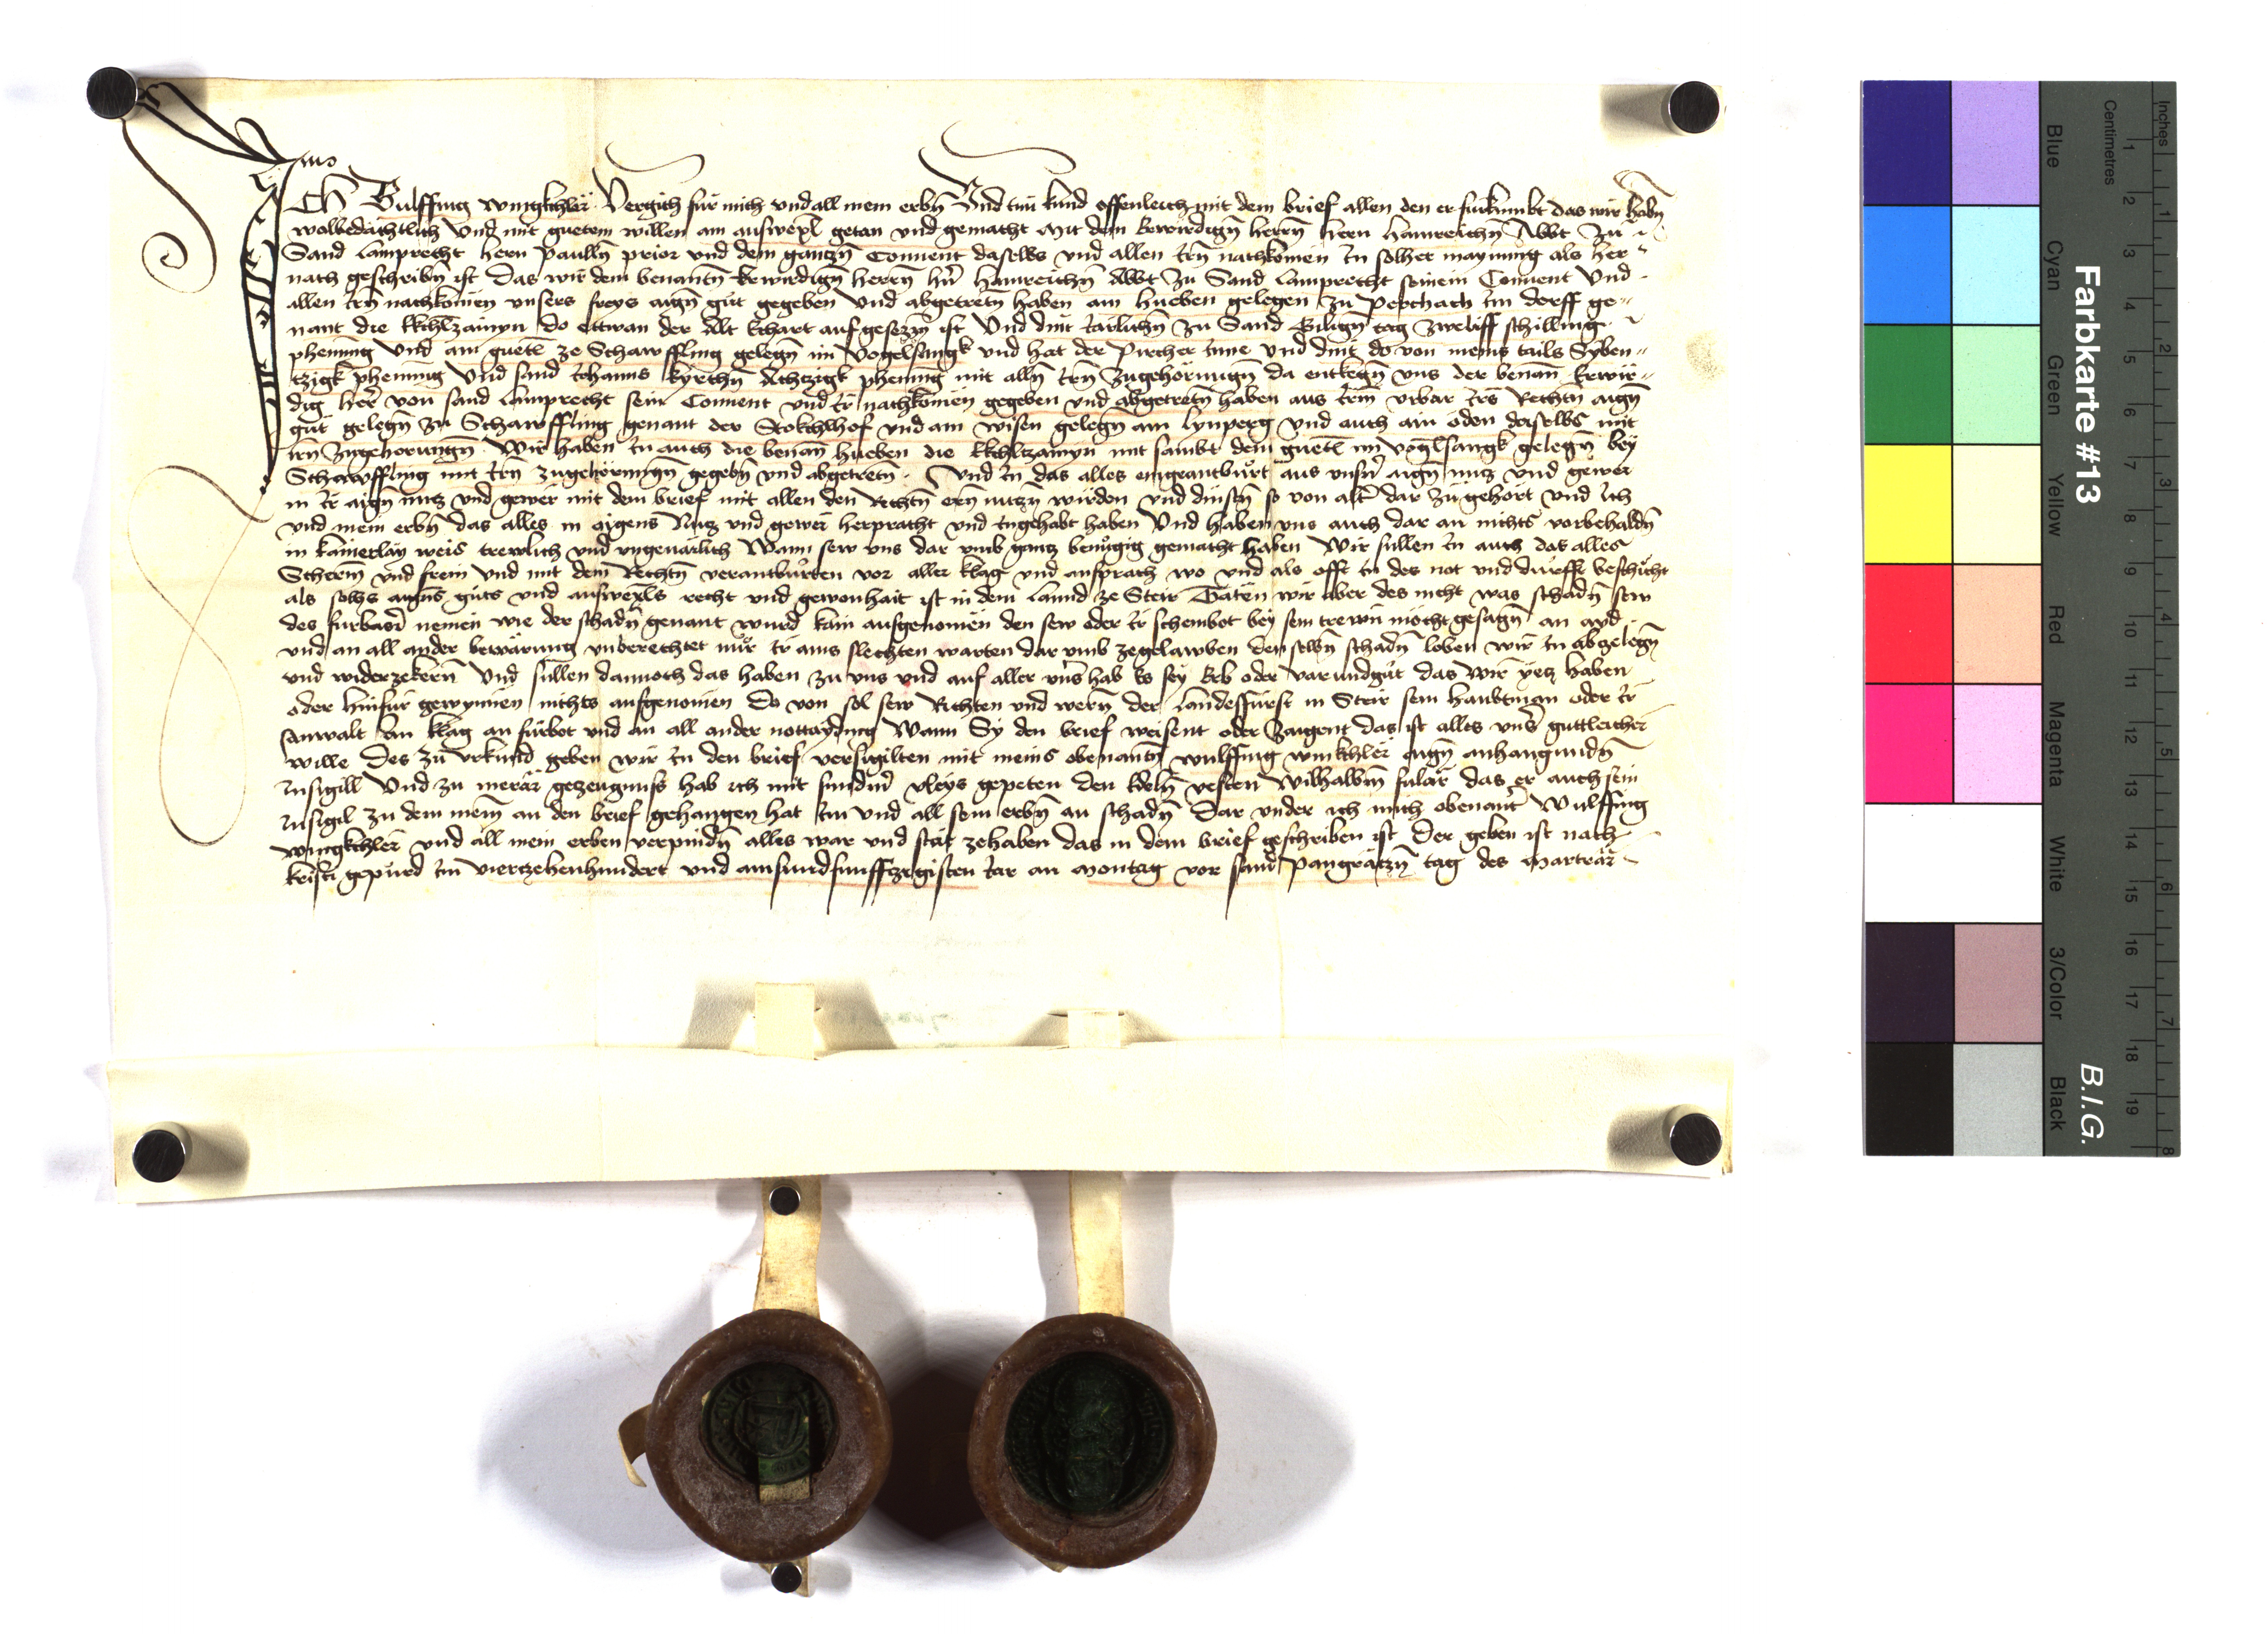 Ich Wulffing wingkchler Vergich für mich vnd all mein erbn̄ Vnd tun kund offenleich mit dem brief allen den er fürkumbt das wir habn̄
wolbedachtlich Vnd mit guetem willen ain auswexl getan vnd gemacht Mit dem Erwirdign̄ herrn̄ hern hainreichn̄ Abbt Zu
Sand Lamprecht hern Paulln̄ prior vnd dem gantzn̄ Conuent daselbs vnd allen irn̄ nachkomen In solher maynung als her
nach geschribn̄ ist Das wir dem benantn̄ Erwirdign̄ herrn̄ hn̄ hainreichn̄ Abbt zu Sand Lamprecht seinem Conuent Vnd
allen irn̄ nachkomen vnsers freys aign̄ gut gegeben Vnd abgetretn̄ haben ain hueben gelegen zu Perchach im dorff ge
nant die kkchlzainyn do ettwan der Alt Echart aufgesezzn̄ ist Vnd dint iarlichn̄ zu Sand Gilign̄ tag zweliff schilling
phening Vnd ain guetl ze Scharffling gelegn̄ im Vogelsangk vnd hat der Pircher Inne vnd dint do von meins tails Syben
tzigk phening Vnd sand Johanns kyrchn̄ Achtzigk phening mit alln̄ irn̄ zugehorungn̄ da entkegn̄ vns der benan̄ Erwir
dig her von sand Lamprecht sein Conuent vnd ir nachkomen gegeben vnd abgetretn̄ haben aus irm vrbar irs Rechtn̄ aign̄
gut gelegn̄ zu Scharffling genant der Stokchhof vnd ain wisen gelegn̄ am Lynperg vnd auch ain öden daselbs mit
irn̄ zugehorungn̄ Wir haben in auch die benan̄ hueben die kkchlzainyn mit sambt dem guetl im voglsangk gelegn̄ bey
Scharffling mit irn̄ zugehörungn̄ gegebn̄ vnd abgetretn̄ Vnd in das alles eingeantburt aus vnsn̄ aign̄ nutz vnd gewer
in ir aign̄ nutz vnd gewer mit dem brief mit allen den Rechtn̄ ern̄ nutzn̄ wirden vnd dinstn̄ so von alt̄ dar zu gehört vnd Ich
vnd mein erbn̄ das alles in aigens Nutz vnd gewer herpracht vnd Inngehabt haben Vnd haben vns auch dar an nichts vorbehaldn̄
in kainerlay weis trewlich vnd vngeuarlich Wann sew vns dar vmb gantz benügig gemacht haben Wir sullen in auch das alles
Scherm̄ vnd frein vnd mit dem Rechtn̄ verantburten vor aller klag vnd ansprach wo vnd als offt in des not vnd durfft beschicht
als solhs aigns guts vnd auswexls recht vnd gewonhait ist in dem Lannd ze Steir Taten wir aber des nicht was schadn̄ sew
des furbasn̄ nemen wie der schadn̄ genant wurd kain ausgenomen den sew oder ir scheinbot bey sein trewn möcht gesagn̄ an ayd
vnd an all ander bewarung vnberechtet nur ir ains slechten warten dar vmb zegelawben den selbn̄ schadn̄ loben wir in abgelegn̄
vnd widerzekern̄ Vnd sullen dannoch das haben zu vns vnd auf aller vns̄ hab Es sey Erb oder varundgut das wir yetz haben
oder hinfur gewynnen nichts ausgenomen Do von sol sew Richten vnd wern̄ der Landesfurst in Steir sein haubtman oder ir
anwalt an klag an furbot vnd an all ander nottayding Wann Sy den brief weisent oder zaigent das ist alles vnsn̄ gutleicher
wille Des zu vrkund geben wir in den brief versigilten mit meins obenantn̄ wulffing winkchler aign̄ anhangundn̄
Insigill Vnd zu merar gezeugnuss hab ich mit sundm̄ vleys gepeten den Edeln̄ vesten Wilhalbm̄ sular das er auch sein
Insigil zu dem mein̄ an den brief gehangen hat im vnd all sein erbn̄ an schadn̄ Dar vnder ich mich obenant̄ Wulffing
wingkchler vnd all mein erben verpindn̄ alles war vnd stat zehaben das in dem brief geschriben ist Der geben ist nach
kristi gepurd im vierzehenhundert vnd ainsundfunffzigisten iar an Montag vor sand Pangratzn̄ tag des Marträr
Farbkarte #13
B.I.G.
Blue
Cyan
Green
Yellow
Red
Magenta
White
3/Color
Black
Centimetres
Inches
1 2 3 4 5 6 7 8 9 10 11 12 13 14 15 16 17 18 19
1 2 3 4 5 6 7 8